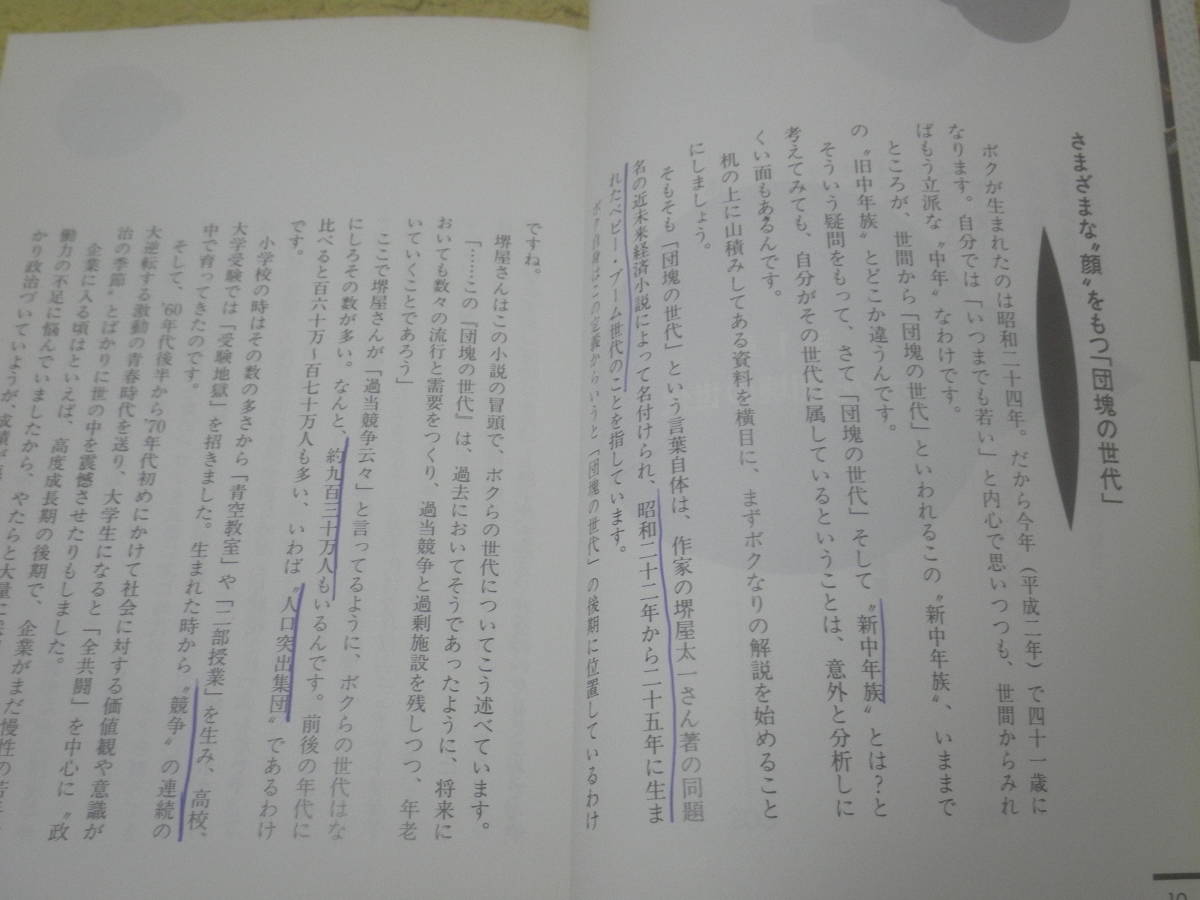 さまざまな〝顔〟をもつ「団塊の世代」
ボクが生まれたのは昭和二十四年。だから今年（平成二年）で四十一歳に
なります。自分では「いつまでも若い」と内心で思いつつも、世間からみれ
ばもう立派な〝中年〟なわけです。
ところが、世間から「団塊の世代」といわれるこの〝新中年族〟、いままで
の〝旧中年族〟とどこか違うんです。
そういう疑問をもって、さて「団塊の世代」そして〝新中年族〟とは？と
考えてみても、自分がその世代に属しているということは、意外と分析しに
くい面もあるんです。
机の上に山積みしてある資料を横目に、まずボクなりの解説を始めること
にしましょう。
そもそも「団塊の世代」という言葉自体は、作家の堺屋太一さん著の同題
名の近未来経済小説によって名付けられ、昭和二十二年から二十五年に生ま
れたベビー・ブーム世代のことを指しています。
ボク自身はこの定義からいうと「団塊の世代」の後期に位置しているわけ
ですね。
堺屋さんはこの小説の冒頭で、ボクらの世代についてこう述べています。
「……この『団塊の世代』は、過去においてそうであったように、将来に
おいても数々の流行と需要をつくり、過当競争と過剰施設を残しつつ、年老
いていくことであろう」
ここで堺屋さんが「過当競争云々」と言ってるように、ボクらの世代はな
にしろその数が多い。なんと、約九百三十万人もいるんです。前後の年代に
比べると百六十万〜百七十万人も多い、いわば〝人口突出集団〟であるわけ
です。
小学校の時はその数の多さから「青空教室」や「二部授業」を生み、高校、
大学受験では「受験地獄」を招きました。生まれた時から〝競争〟の連続の
中で育ってきたのです。
そして、'60年代後半から'70年代初めにかけて社会に対する価値観や意識が
大逆転する激動の青春時代を送り、大学生になると「全共闘」を中心に〝政
治の季節〟とばかりに世の中を震撼させたりもしました。
企業に入る頃はといえば、高度成長期の後期で、企業がまだ慢性の若年
働力の不足に悩んでいましたから、やたらと大量に
かり政治づいていようが、成績が